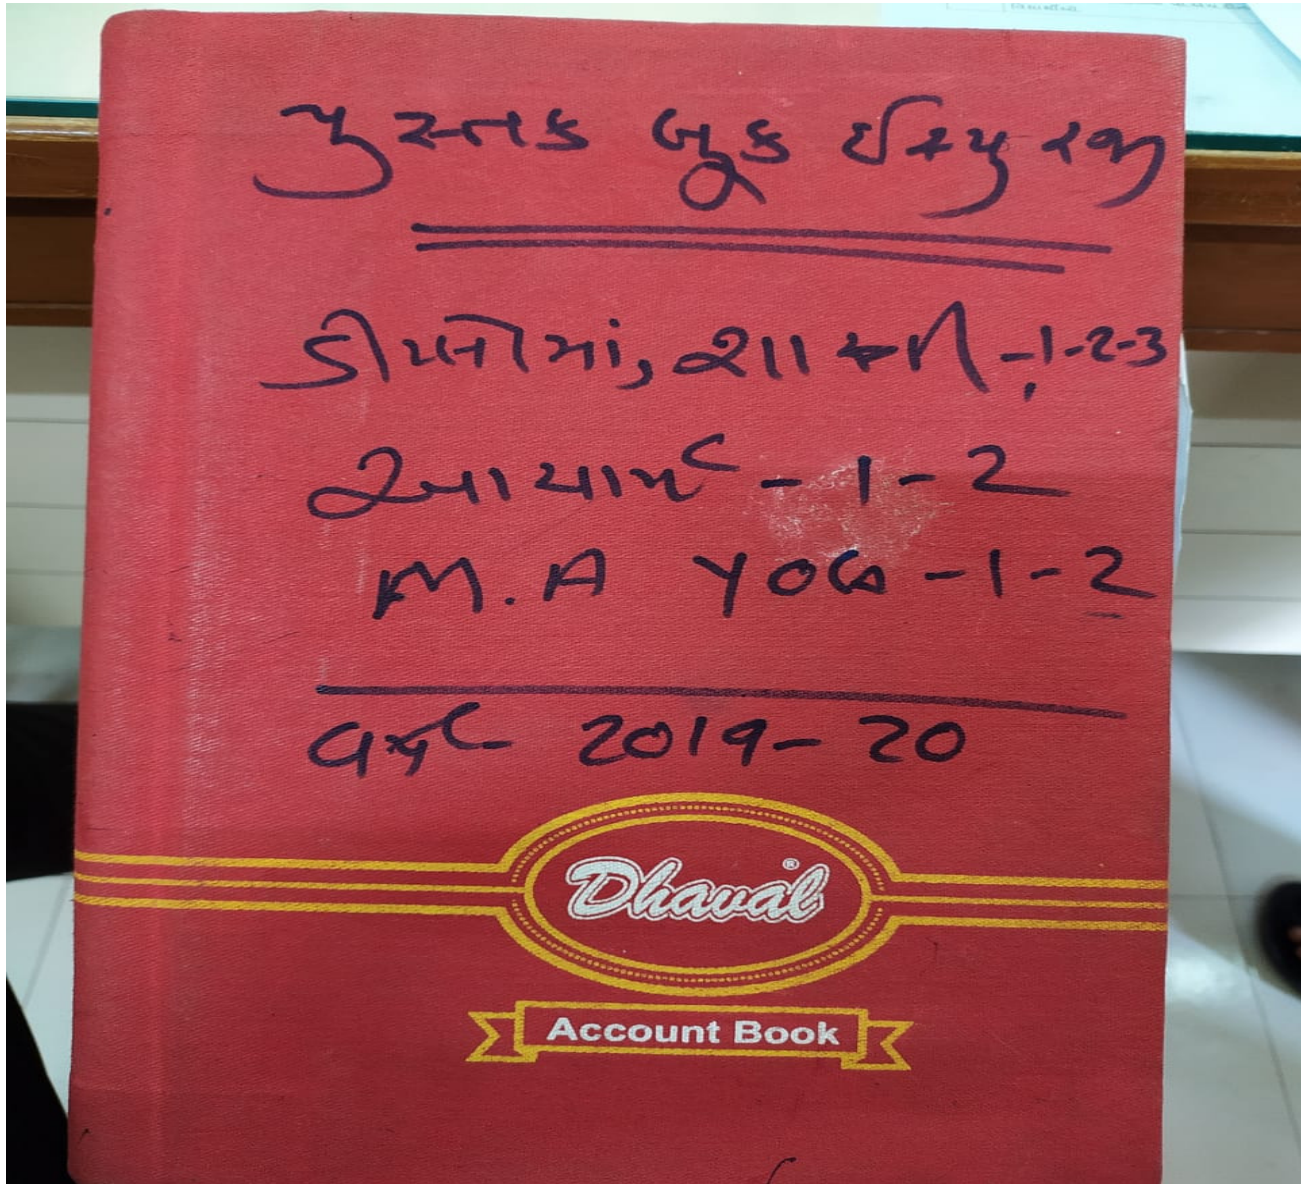 પુસ્તક બૂક ઈસ્યુ રજી
ડીપ્લોમાં, શાસ્ત્રી - 1-2-3
આચાર્ય - 1 - 2
M.A YOG - 1 - 2
વર્ષ 2019 - 20
Dhaval®
Account Book